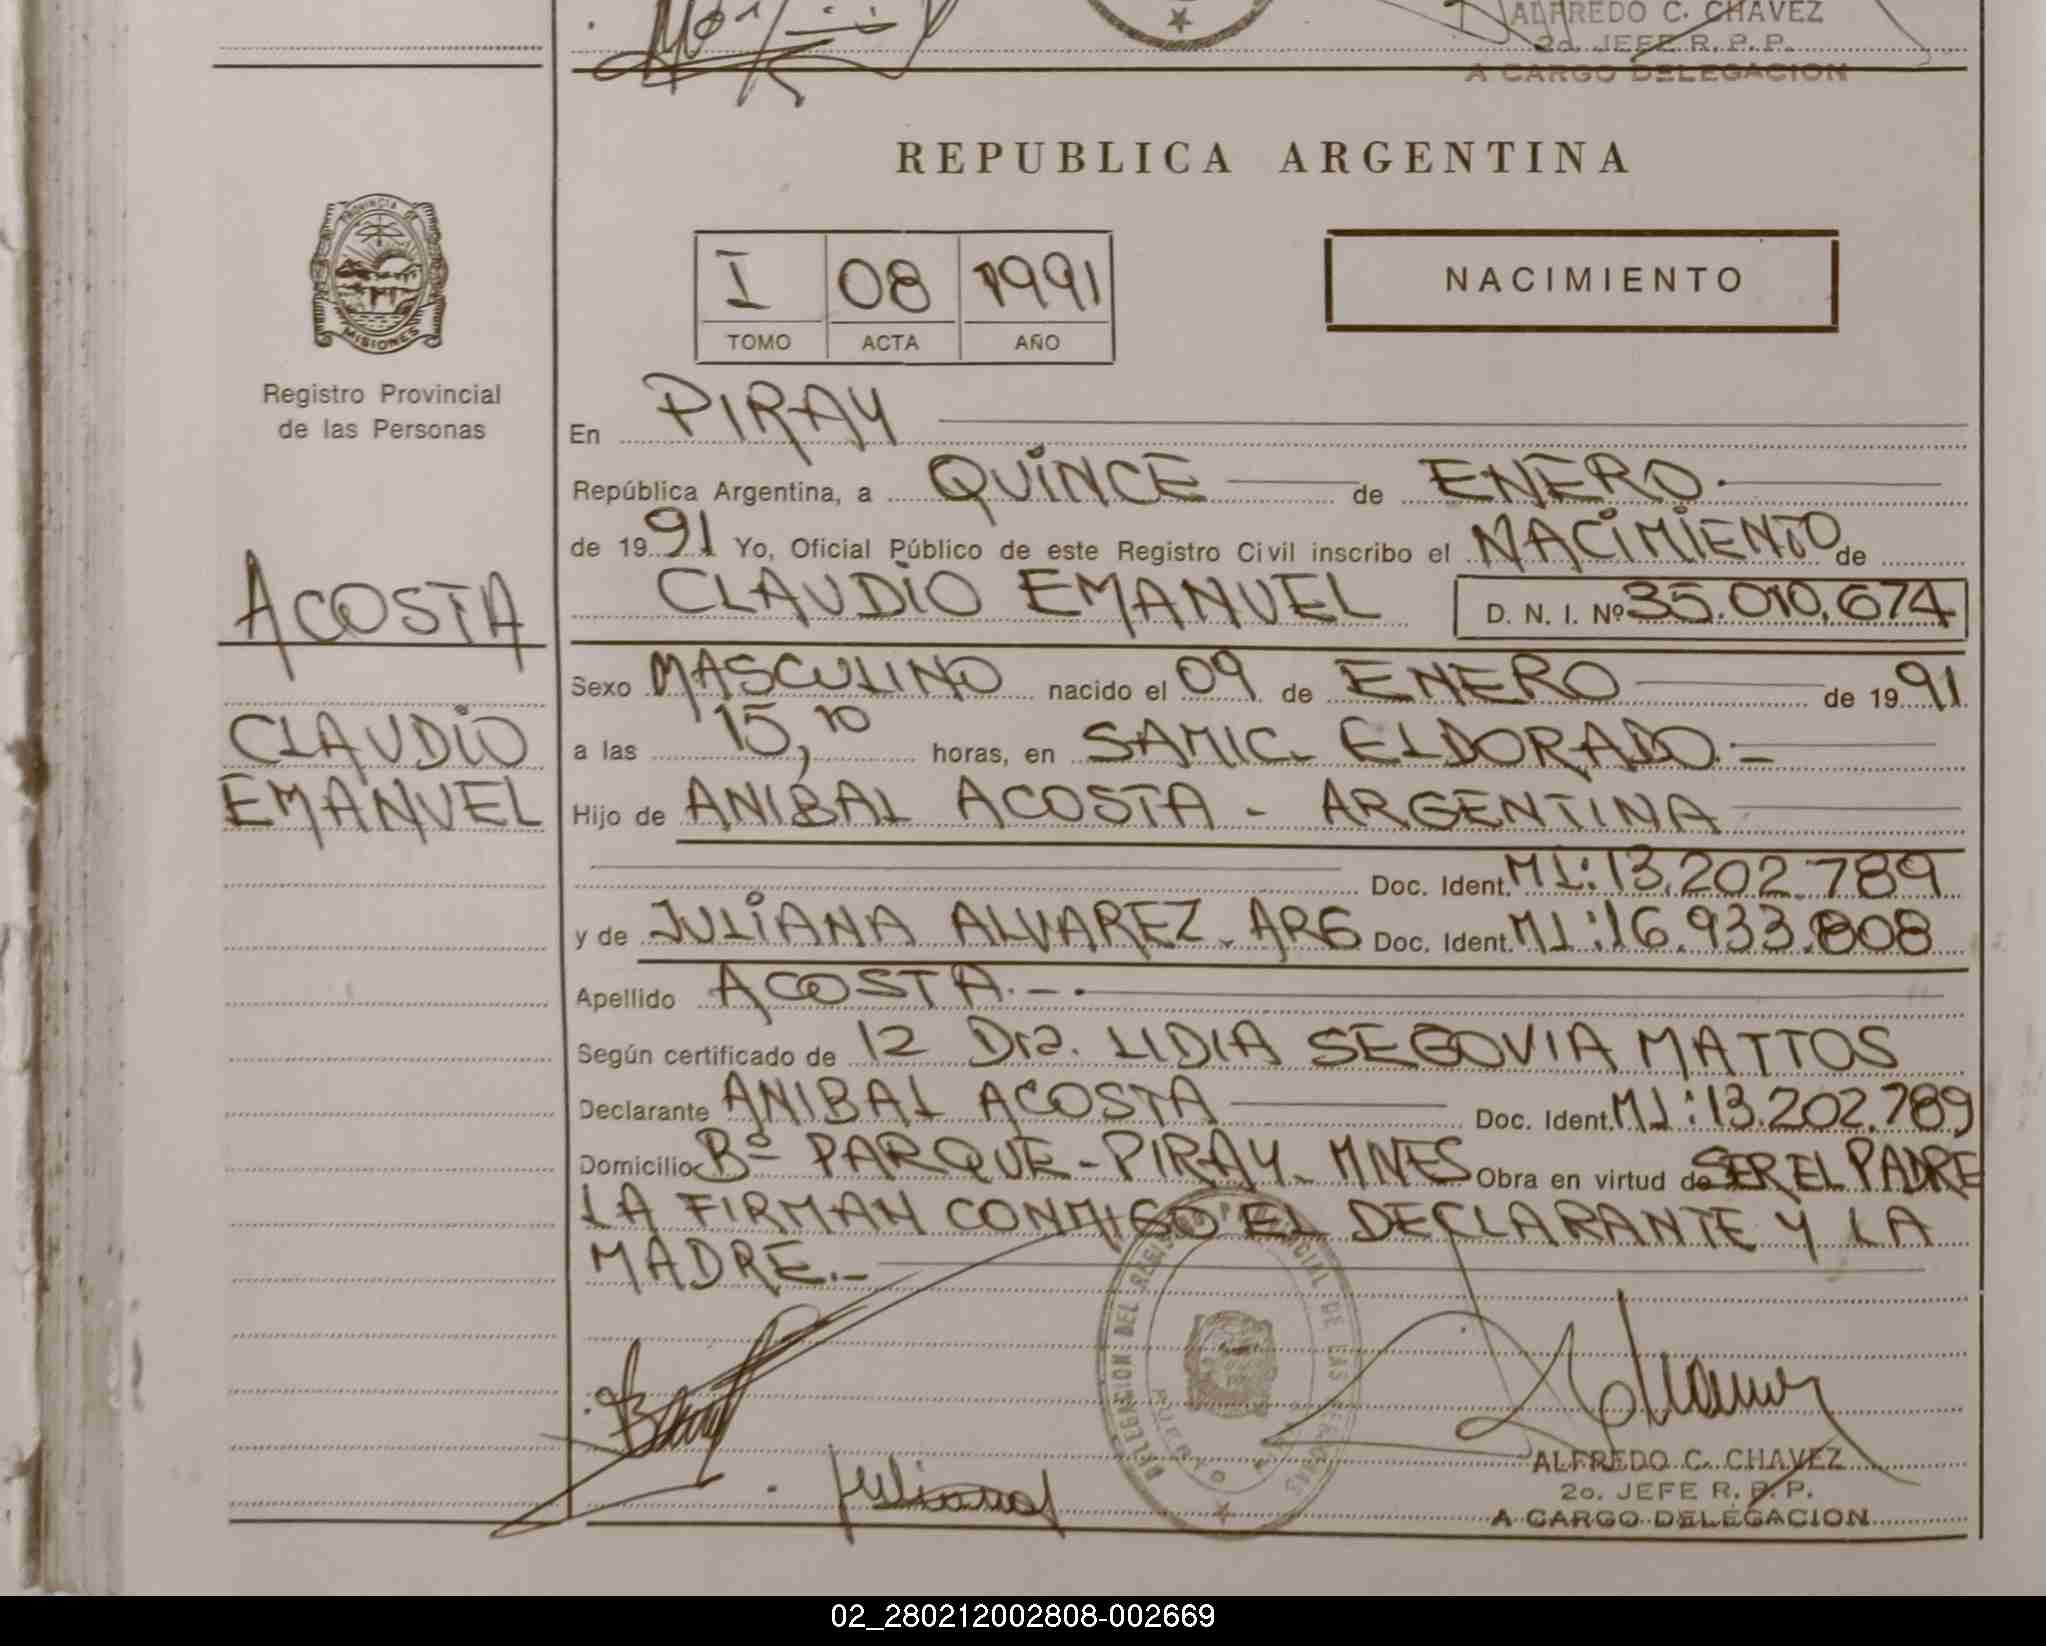 ALFREDO C. CHAVEZ
2o. JEFE R. P. P.
A CARGO DELEGACION
REPUBLICA ARGENTINA
PROVINCIA DE
MISIONES
Registro Provincial
de las Personas
I 08 1991
TOMO ACTA AÑO
NACIMIENTO
En PIRAY
República Argentina, a QUINCE de ENERO.
de 1991 Yo, Oficial Público de este Registro Civil inscribo el NACIMIENTO de
CLAUDIO EMANUEL D. N. I. Nº 35.010.674
ACOSTA
CLAUDIO
EMANUEL
Sexo MASCULINO nacido el 09 de ENERO de 1991
a las 15,10 horas, en SAMIC- ELDORADO.-
Hijo de ANIBAL ACOSTA - ARGENTINA
Doc. Ident. MI: 13.202.789
y de JULIANA ALVAREZ - ARG Doc. Ident. MI: 16.933.808
Apellido ACOSTA.-.
Según certificado de 12 Dra. LIDIA SEGOVIA MATTOS
Declarante ANIBAL ACOSTA Doc. Ident. MI: 13.202.789
Domicilio Bº PARQUE - PIRAY - MNES Obra en virtud de SER EL PADRE
LA FIRMAN CONMIGO EL DECLARANTE Y LA
MADRE.-
DELEGACION DEL REGISTRO PROVINCIAL DE LAS PERSONAS
Juliana
ALFREDO C. CHAVEZ
2o. JEFE R. P. P.
A CARGO DELEGACION
02_280212002808-002669